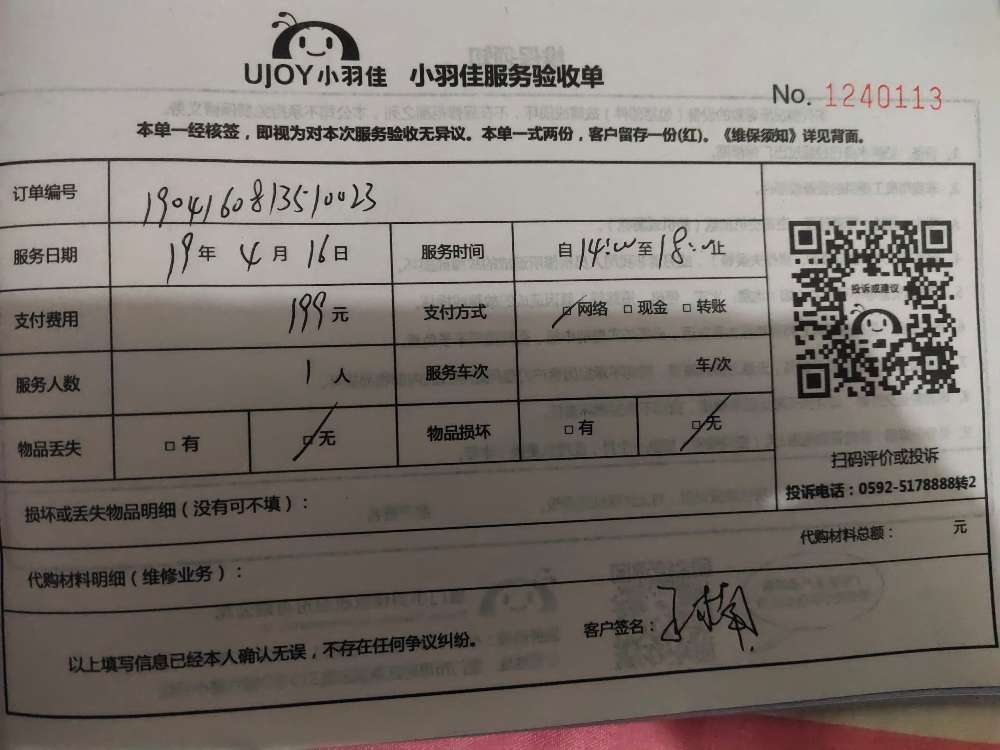 UJOY小羽佳 小羽佳服务验收单
No. 1240113
本单一经核签，即视为对本次服务验收无异议。本单一式两份，客户留存一份(红)。《维保须知》详见背面。
订单编号 1904160813510023
服务日期 19年 4月 16日 服务时间 自14:00至18:00止
支付费用 199元 支付方式 □网络 □现金 □转账
服务人数 1人 服务车次 车/次
物品丢失 □有 □无 物品损坏 □有 □无
投诉或建议
扫码评价或投诉
投诉电话：0592-5178888转2
损坏或丢失物品明细（没有可不填）：
代购材料总额： 元
代购材料明细（维修业务）：
客户签名：
以上填写信息已经本人确认无误，不存在任何争议纠纷。